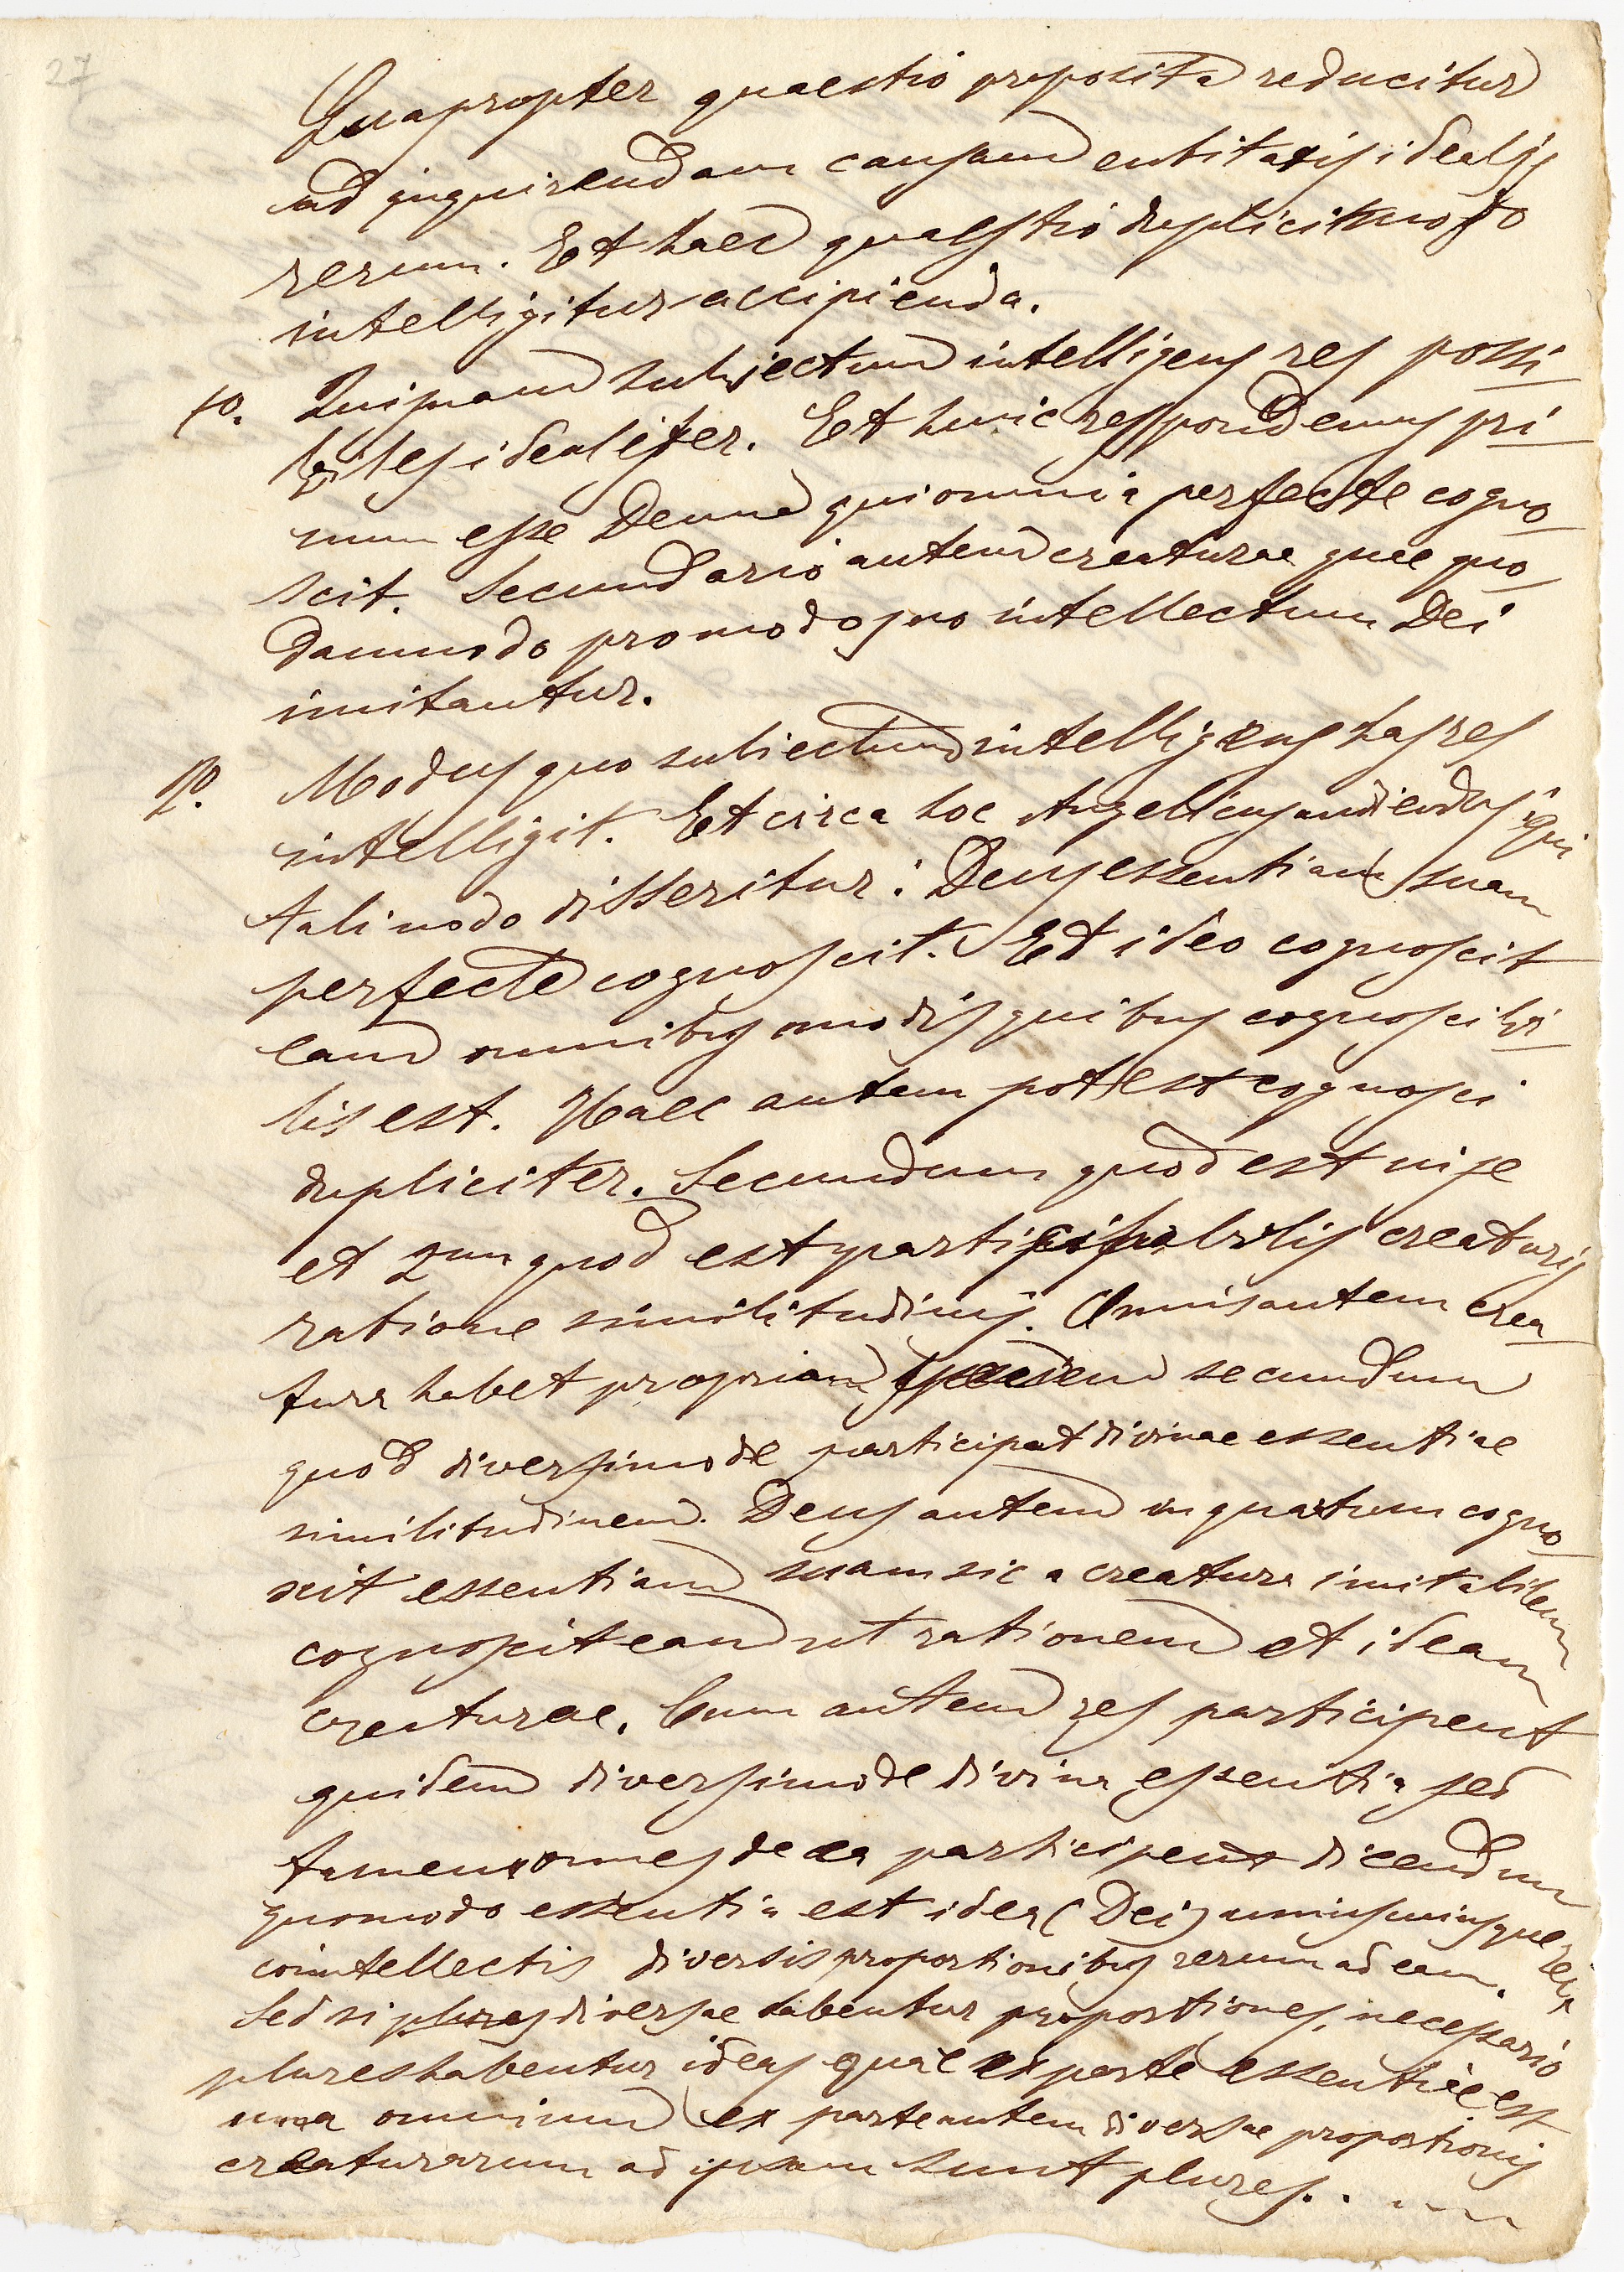 27
Quapropter quaestio proposita reducitur
ad inquirendam causam entitatis idealis
rerum. Et haec quaestio duplici modo
intelligitur accipienda.
1o. Quisnam subjectum intelligens res possi
biles idealiter. Et huic respondemus pri
mum esse Deum qui omnia perfecte cogno
scit. Secundario autem creaturae quae quo
dammodo pro modo suo intellectum Dei
imitantur.
2o. Modus quo subiectum intelligens has res
intelligit. Et circa hoc Angelicus audiendus qui
tali modo disseritur: Deus essentiam suam
perfecte cognoscit. Et ideo cognoscit
eam omnibus modis quibus cognoscibi
lis est. Haec autem potest cognosci
dupliciter. Secundum quod est in se
et 2um quod est participabilis creaturis
ratione similitudinis. Omnis autem crea
tura habet propriam speciem secundum
quod diversimode participat divinae essentiae
similitudinem. Deus autem in quantum cogno
scit essentiam suam sic a creatura imitabilem
cognoscit eam ut rationem et ideam
creaturae. Cum autem res participent
quidem diversimode divina essentia sed
tamen omnes de ea participent dicendum
quomodo essentia est idea (Dei) uniuscuiusque rei
cointellectis diversis proportionibus rerum ad eam.
Sed si plures diversae habentur proportiones, necessario
plures habentur ideas quae ex parte essentiae est
una omnium ex parte autem diversae proportionis
creaturarum ad ipsam sunt plures. . . . .